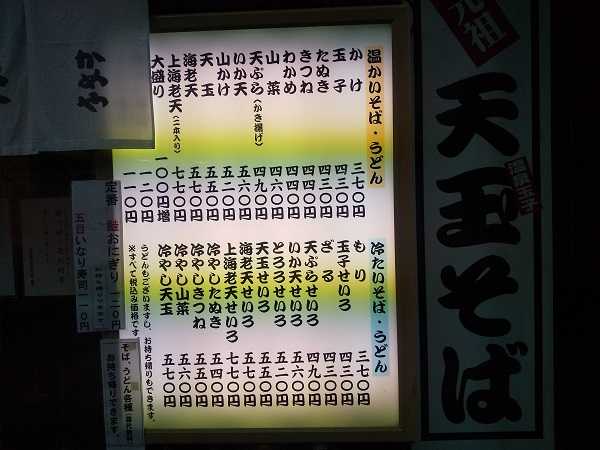 元祖
天玉そば
温かいそば・うどん
かけ 三七〇円
玉子 四三〇円
たぬき 四三〇円
きつね 四四〇円
わかめ 四四〇円
山菜 四六〇円
天ぷら(かき揚げ) 四九〇円
いか天 五六〇円
山かけ 五二〇円
天玉 五五〇円
海老天 五五〇円
上海老天(二本入り) 七七〇円
大盛り 一〇〇円増
一二〇円
一一〇円
冷たいそば・うどん
もり 三七〇円
玉子せいろ 四三〇円
ざる 四三〇円
天ぷらせいろ 四九〇円
いか天せいろ 五六〇円
とろろせいろ 五二〇円
天玉せいろ 五五〇円
海老天せいろ 五五〇円
上海老天せいろ 七七〇円
冷やしたぬき 五四〇円
冷やしきつね 五五〇円
冷やし山菜 五六〇円
冷やし天玉 五七〇円
うどんもございますし、お持ち帰りもできます。
※すべて税込み価格です
定番 鮭おにぎり 一二〇円
五目いなり寿司 一一〇円
そば、うどん各種
お持ち帰りできます。